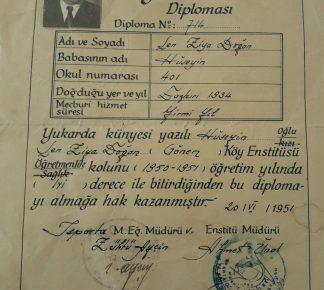 Diploması
Diploma No: 714
Adı ve Soyadı Şen Ziya Doğan
Babasının adı Hüseyin
Okul numarası 401
Doğduğu yer ve yıl 1934
Mecburi hizmet süresi Yirmi Yıl
Yukarda künyesi yazılı Hüseyin Oğlu kızı
Şen Ziya Doğan ( Gönen ) Köy Enstitüsü
Öğretmenlik Sağlık kolunu (1950-1951) öğretim yılında
( İyi ) derece ile bitirdiğinden bu diploma-
yı almağa hak kazanmıştır. 20/VI/1951
Isparta M. Eğ. Müdürü v. Enstitü Müdürü